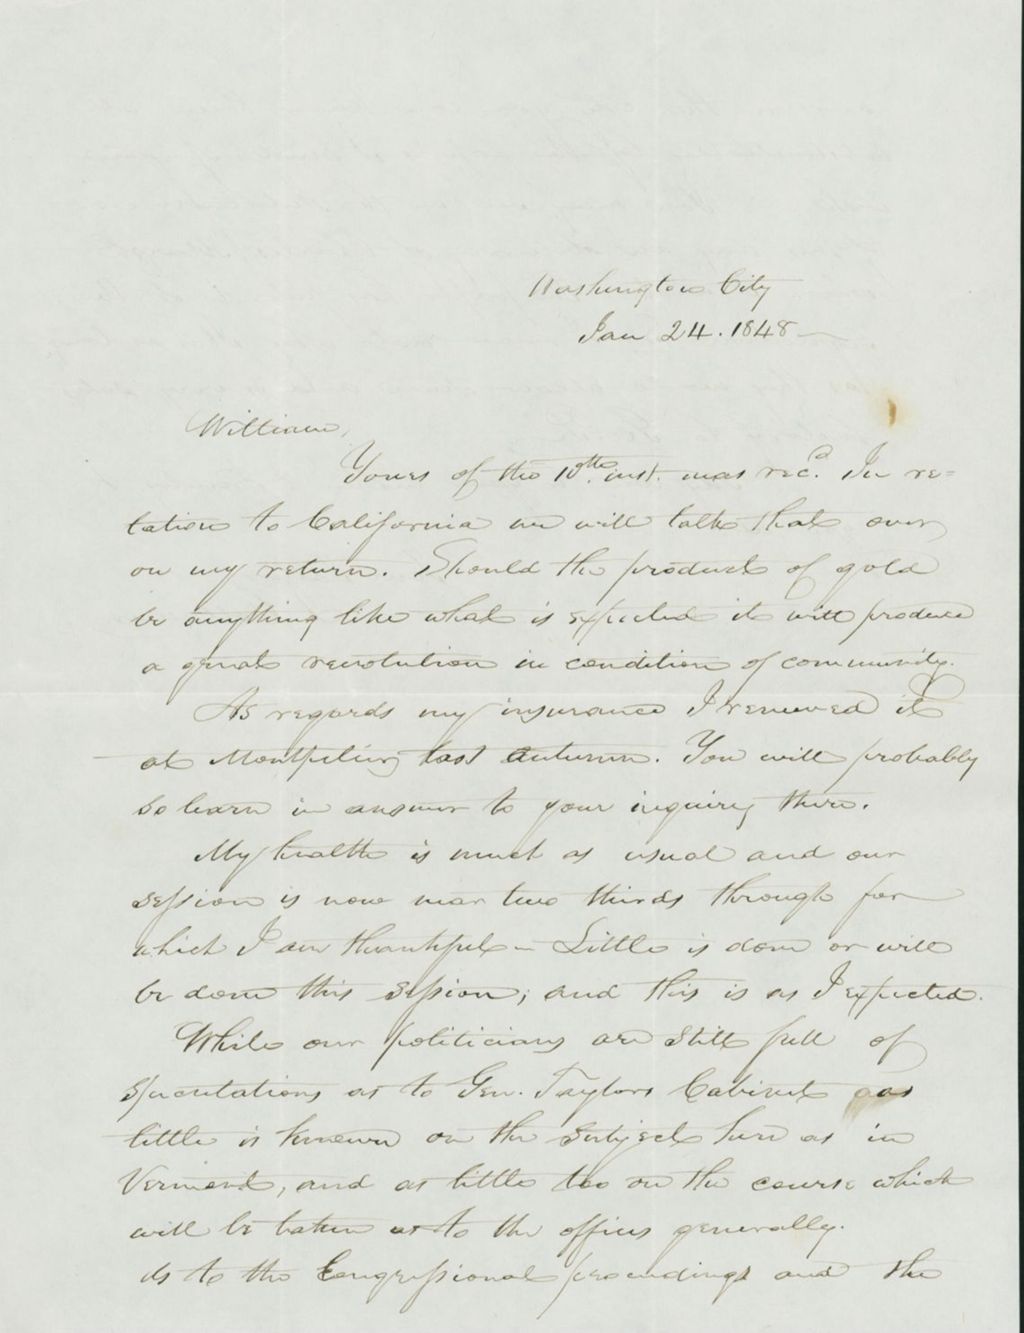 Washington City
Jan 24. 1848
William,
Yours of the 10th. inst. was recd. In re=
lation to California we will talk that over
on my return. Should the product of gold
be anything like what is expected it will produce
a great revolution in condition of community.
As regards my insurance I renewed it
at Montpelier last autumn. You will probably
so learn in answer to your inquiry there.
My health is much as usual and our
session is now near two thirds through for
which I am thankful - Little is done or will
be done this session; and this is as I expected.
While our politicians are still full of
speculations as to Gen. Taylors Cabinet as
little is known on the subject here as in
Vermont, and as little too on the course which
will be taken as to the offices generally.
As to the Congressional proceedings and the